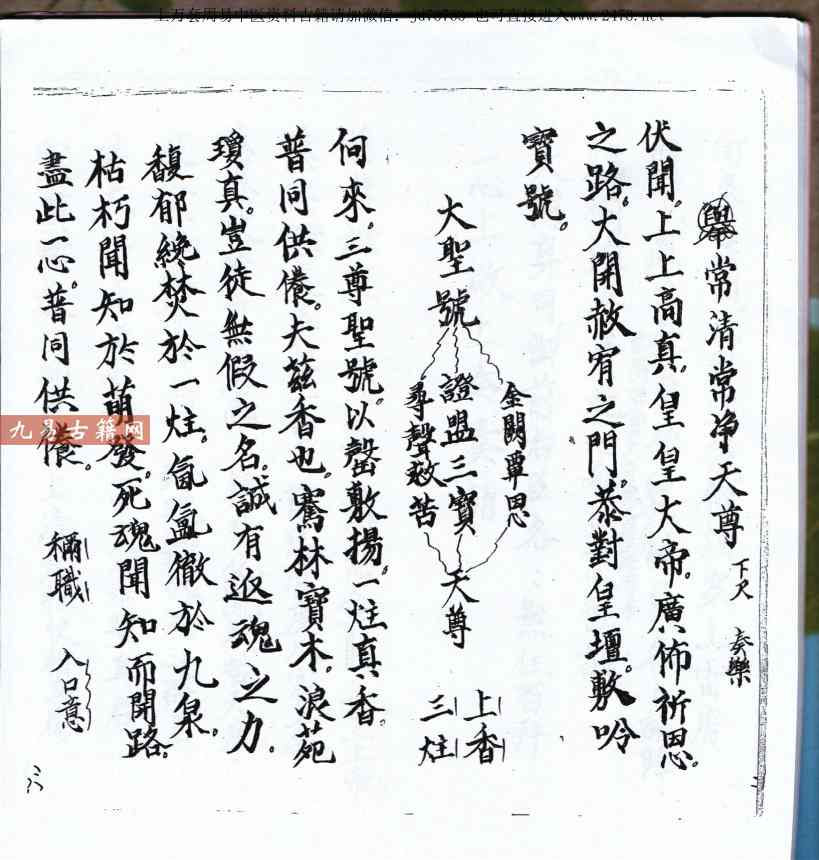 上万套周易中医资料古籍请加微信：jd78780 也可直接进入www.2478.net
舉常清常净天尊 下尺 奏樂
伏聞。上上高真。皇皇大帝。廣佈祈恩。
之路。大開赦宥之門。恭對皇壇。敷吟
寶號。
大聖號
金闕覃恩
證盟三寶
尋聲救苦
天尊
上香
三炷
何來。三尊聖號。以罄敷揚。一炷真香。
普同供養。夫兹香也。騫林寶木。浪苑
瓊真。豈徒無假之名。誠有返魂之力。
馥郁繞焚於一炷。氤氳徹於九泉。
枯朽聞知於萌發。死魂聞知而開路。
盡此一心。普同供養。 稱職 入口意
九易古籍网